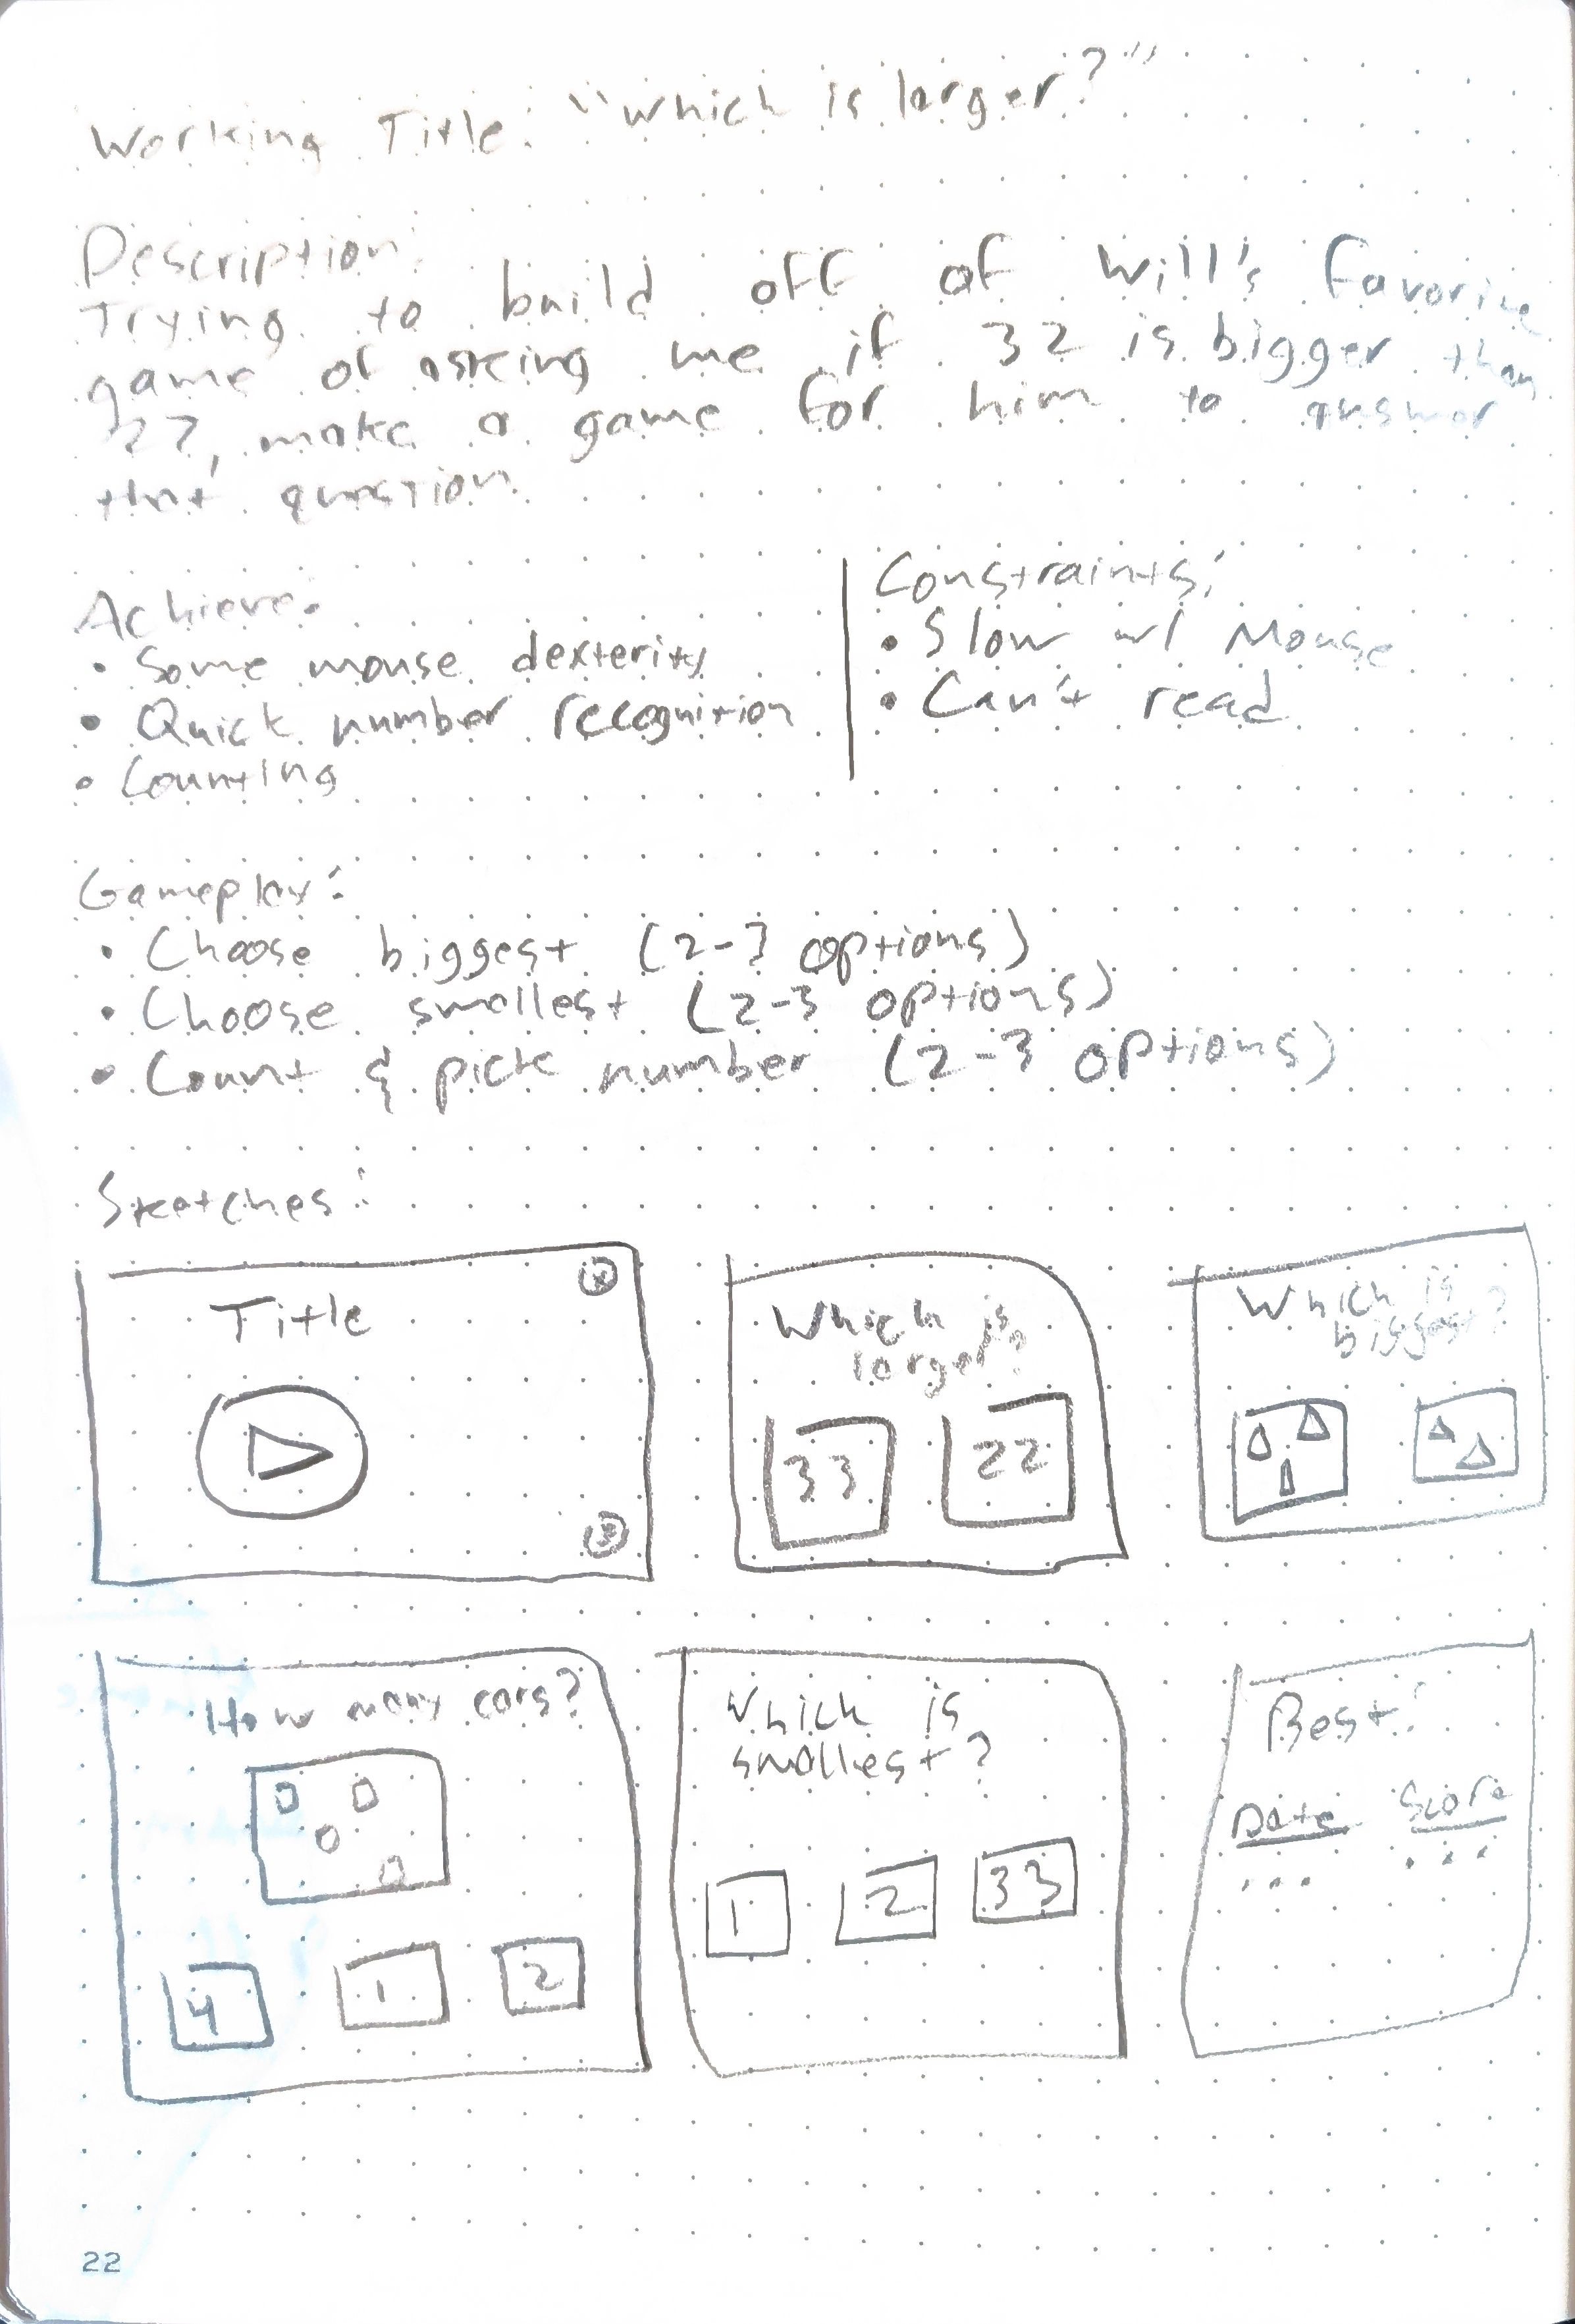 Working Title: "Which is larger?"
Description:
Trying to build off of Will's favorite
game of asking me if 32 is bigger than
22, make a game for him to answer
that question.
Achieve:
• Some mouse dexterity
• Quick number recognition
• Counting
Constraints:
• Slow w/ Mouse
• Can't read
Gameplay:
• Choose biggest (2-3 options)
• Choose smallest (2-3 options)
• Count & pick number (2-3 options)
Sketches:
Title
x
Which is
larger?
33 22
Which is
biggest?
How many cars?
4 1 2
Which is
smallest?
1 2 33
Best:
Date Score
... ...
22